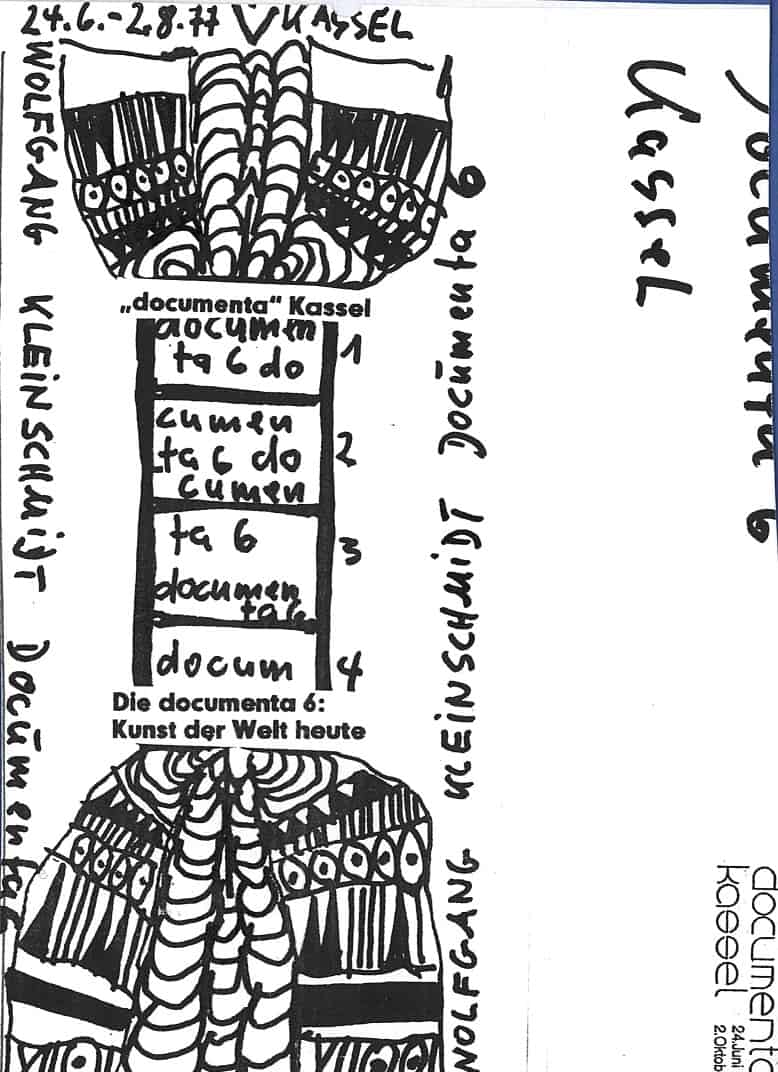 24.6.-2.8.77 KASSEL
WOLFGANG KLEINSCHMIDT Documenta 6
„documenta“ Kassel
documen
ta 6 do
1
cumen
ta 6 do
cumen
2
ta 6
documen
ta 6
3
docum
4
Die documenta 6:
Kunst der Welt heute
WOLFGANG KLEINSCHMIDT Documenta 6
Kassel
documenta 6
documenta
kassel
24.Juni
2.Oktob